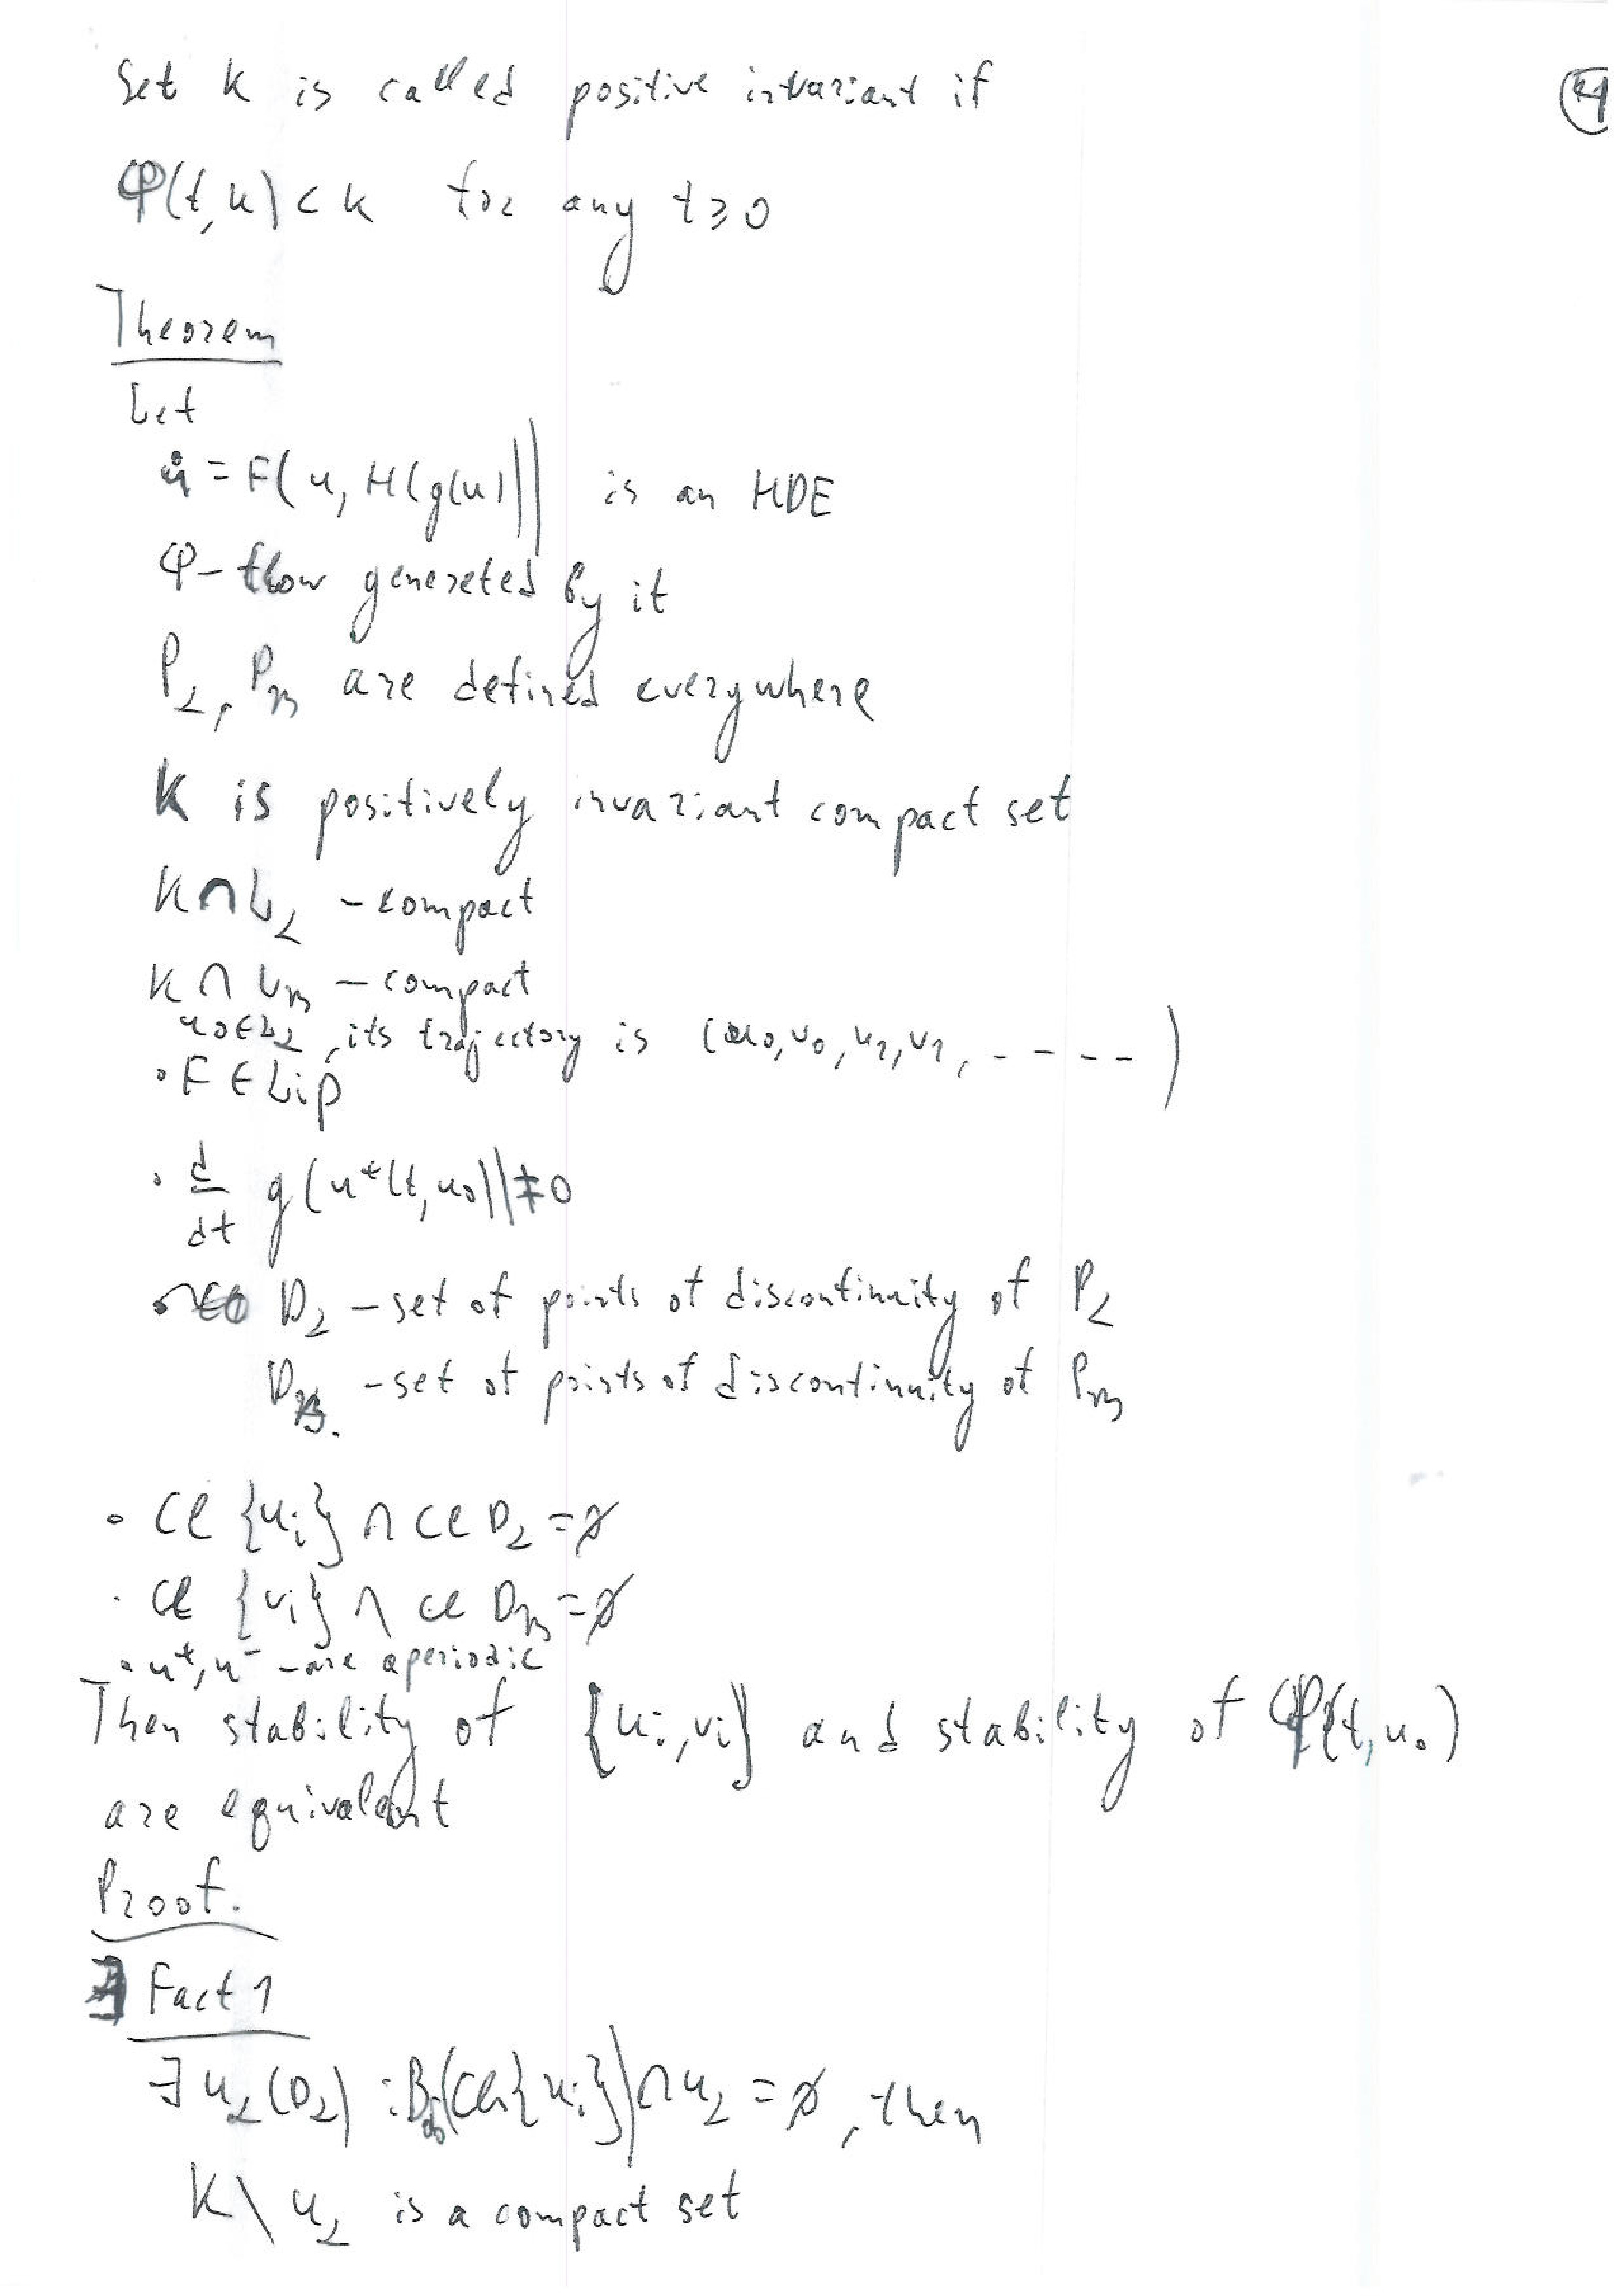 Set K is called positive invariant if
④
φ(t,K) ⊂ K for any t ≥ 0
Theorem
Let
u̇ = F(u, H(g(u))) is an HDE
φ – flow genereted by it
P_α, P_β are defined everywhere
K is positively invariant compact set
K ∩ L_α – compact
K ∩ L_β – compact
u_0 ∈ L_α, its trajectory is (u_0, v_0, u_1, v_1, - - - -)
• F ∈ Lip
• d/dt g(u^+(t, u_0)) ≠ 0
• D_α – set of points of discontinuity of P_α
D_β. – set of points of discontinuity of P_β
• Cl {u_i} ∩ Cl D_α = ∅
• Cl {v_i} ∩ Cl D_β = ∅
• u^+, u^- – are aperiodic
Then stability of {u_i, v_i} and stability of φ(t, u_0)
are equivalent
Proof.
Fact 1
∃ U_α(D_α) : B_δ0(Cl{u_i}) ∩ U_α = ∅, then
K \ U_α is a compact set